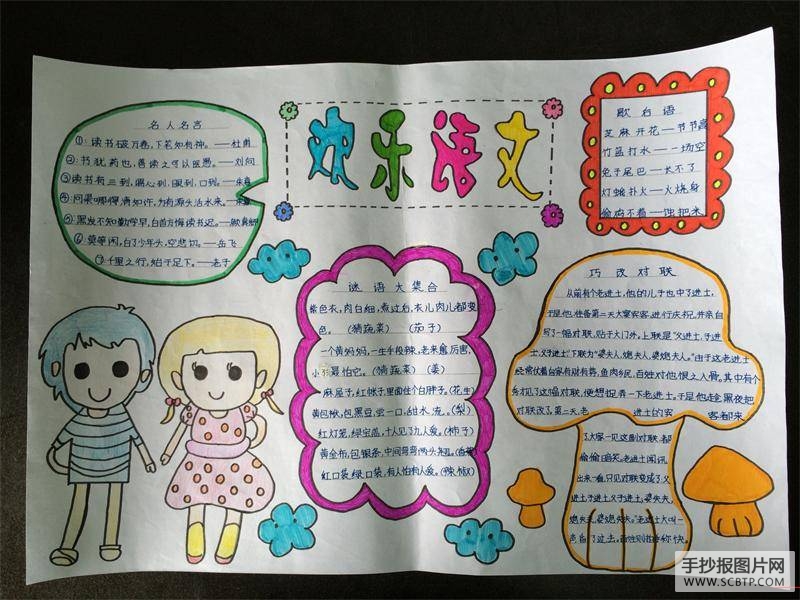 欢乐语文
名人名言
①:读书破万卷,下笔如有神。——杜甫
②:书犹药也,善读之可以医愚。——刘向
③读书有三到,谓心到,眼到,口到。——朱熹
④:问渠哪得清如许,为有源头活水来。——朱熹
⑤:黑发不知勤学早,白首方悔读书迟。——颜真卿
⑥:莫等闲,白了少年头,空悲切。——岳飞
⑦:千里之行,始于足下。——老子
歇后语
芝麻开花——节节高
竹篮打水——一场空
兔子尾巴——长不了
灯蛾扑火——火烧身
偷鸡不着——蚀把米
谜语大集合
紫色衣,肉白细,煮过后,衣儿肉儿都变
色。(猜蔬菜)(茄子)
一个黄妈妈,一生手段辣,老来愈厉害,
小孩最怕它。(猜蔬菜)(姜)
麻屋子,红帐子,里面住个白胖子。(花生)
黄包袱,包黑豆,尝一口,甜水流。(梨)
红灯笼,绿宝盖,十人见了九人爱。(柿子)
黄金布,包银条,中间弯弯两头翘。(香蕉)
红口袋,绿口袋,有人怕有人爱。(辣椒)
巧改对联
从前有个老进士,他的儿子也中了进士,
于是他准备第二天大宴宾客,进行庆祝,并亲自
写了一幅对联,贴于大门外。上联是“父进士,子进
士,父子进士”下联为“婆夫人,媳夫人,婆媳夫人。”由于这老进士
经常仗着自家有财有势,鱼肉乡民,百姓对他恨之入骨。其中有个
秀才见了这幅对联,便想捉弄一下老进士。于是他趁黑夜把
对联改了。第二天,老进士的宾客都来
了,大家一见这副对联,都
偷偷暗笑。老进士闻讯
出来一看,只见对联变成了父
进土,子进土,父子进土。婆失夫,
媳失夫,婆媳失夫。”老进士大叫一
声,自了过去,百姓则拍手称快。
手抄报图片网
WWW.SCBTP.COM